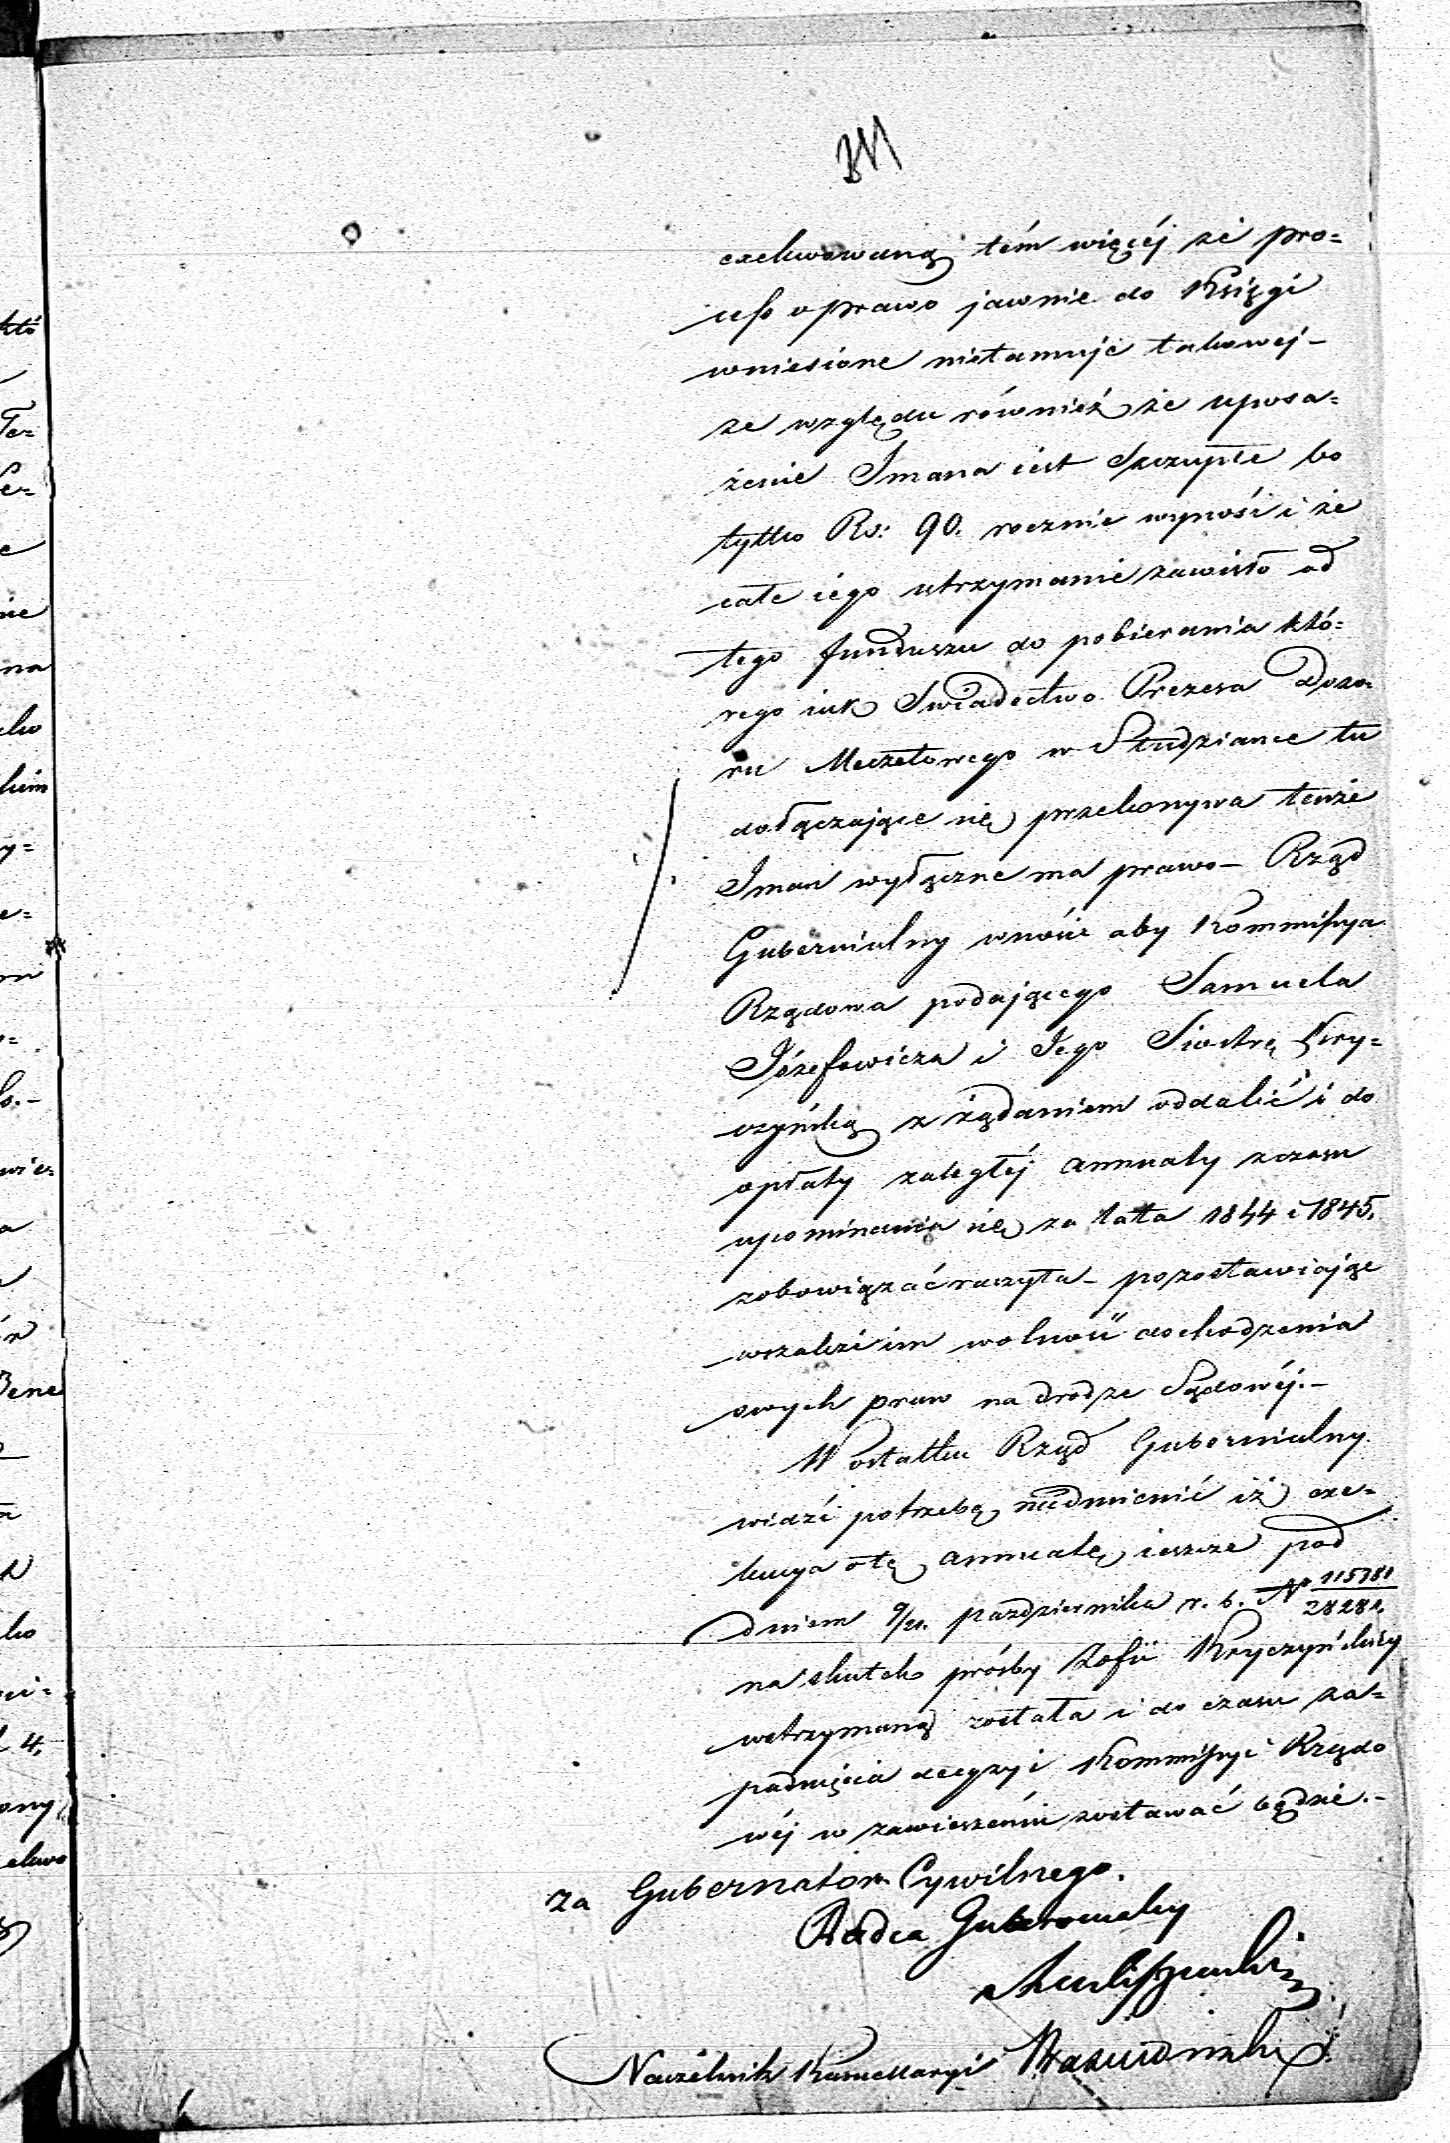 exekwowaną tém więcéj że pro=
cess o prawo jawnie do Księgi
wniesione nietamuje takowej –
ze względu również że uposa=
żenie Imana iest szczupłe bo
tylko Rs: 90. rocznie wynosi i że
całe iego utrzymanie zawisło od
tego funduszu do pobierania któ=
rego iak Swiadectwo Prezesa Dozo-
ru Meczetowego w Studziance tu
dołączające się przekonywa tenże
Iman wyłączne ma prawo – Rząd
Gubernialny wnosi aby Kommissya
Rządowa podającego Samuela
Józefowicza i Jego Siostrę Kry=
czyńską z żądaniem oddalić i do
opłaty zaległej annuaty z czasu
upominania się za lata 1844 i 1845.
zobowiązać raczyła – pozostawiając
wszakże im wolność dochodzenia
swych praw na drodze Sądowéj. –
W ostatku Rząd Gubernialny
widzi potrzebę nadmienić iż exe-
kucya o tę annuatę ieszcze pod
dniem 9/21. października r. b. No 115781/28282.
na skutek prośby Zofii Kryczyńskiéy
wstrzymaną została i do czasu za=
padnięcia decyzyi Kommissyi Rządo
wéj w zawieszeniu zostawać będzie. –
za Gubernatora Cywilnego.
Radca Gubernialny
Naczelnik Kancellaryi
któ
Te=
ie
na
kim
y=
wie=
Bene
4.
ony